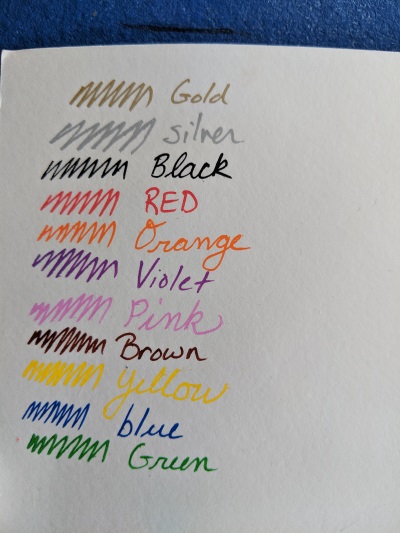 Gold
silver
Black
RED
Orange
Violet
Pink
Brown
yellow
blue
Green